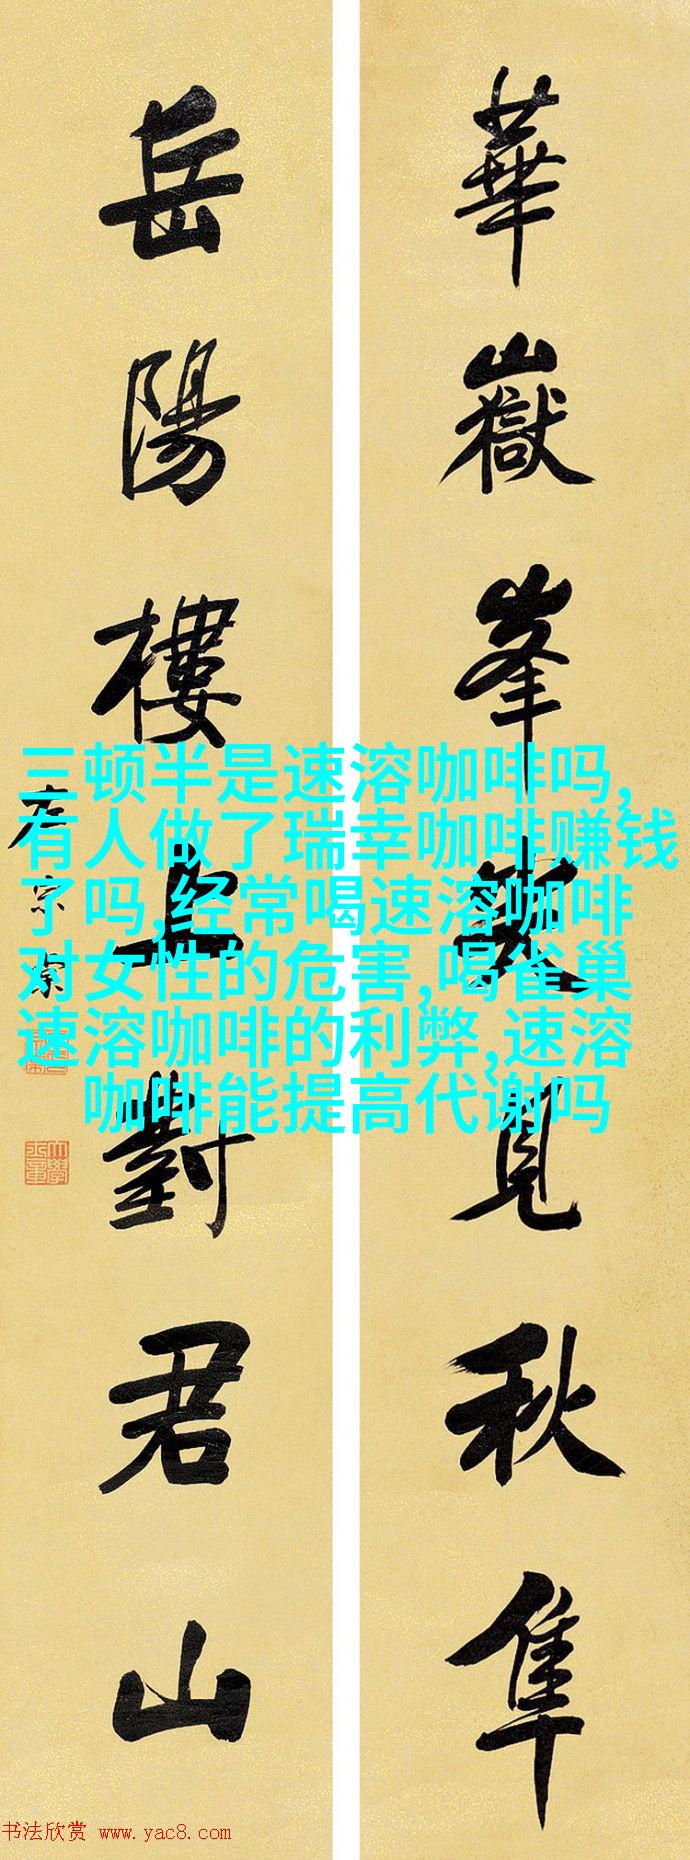 華嶽峯尖見秋隼
岳陽樓上對君山
左宗棠
三顿半是速溶咖啡吗,
有人做了瑞幸咖啡赚钱
了吗,经常喝速溶咖啡
对女性的危害,喝雀巢
速溶咖啡的利弊,速溶
咖啡能提高代谢吗
书法欣赏 www.yac8.com